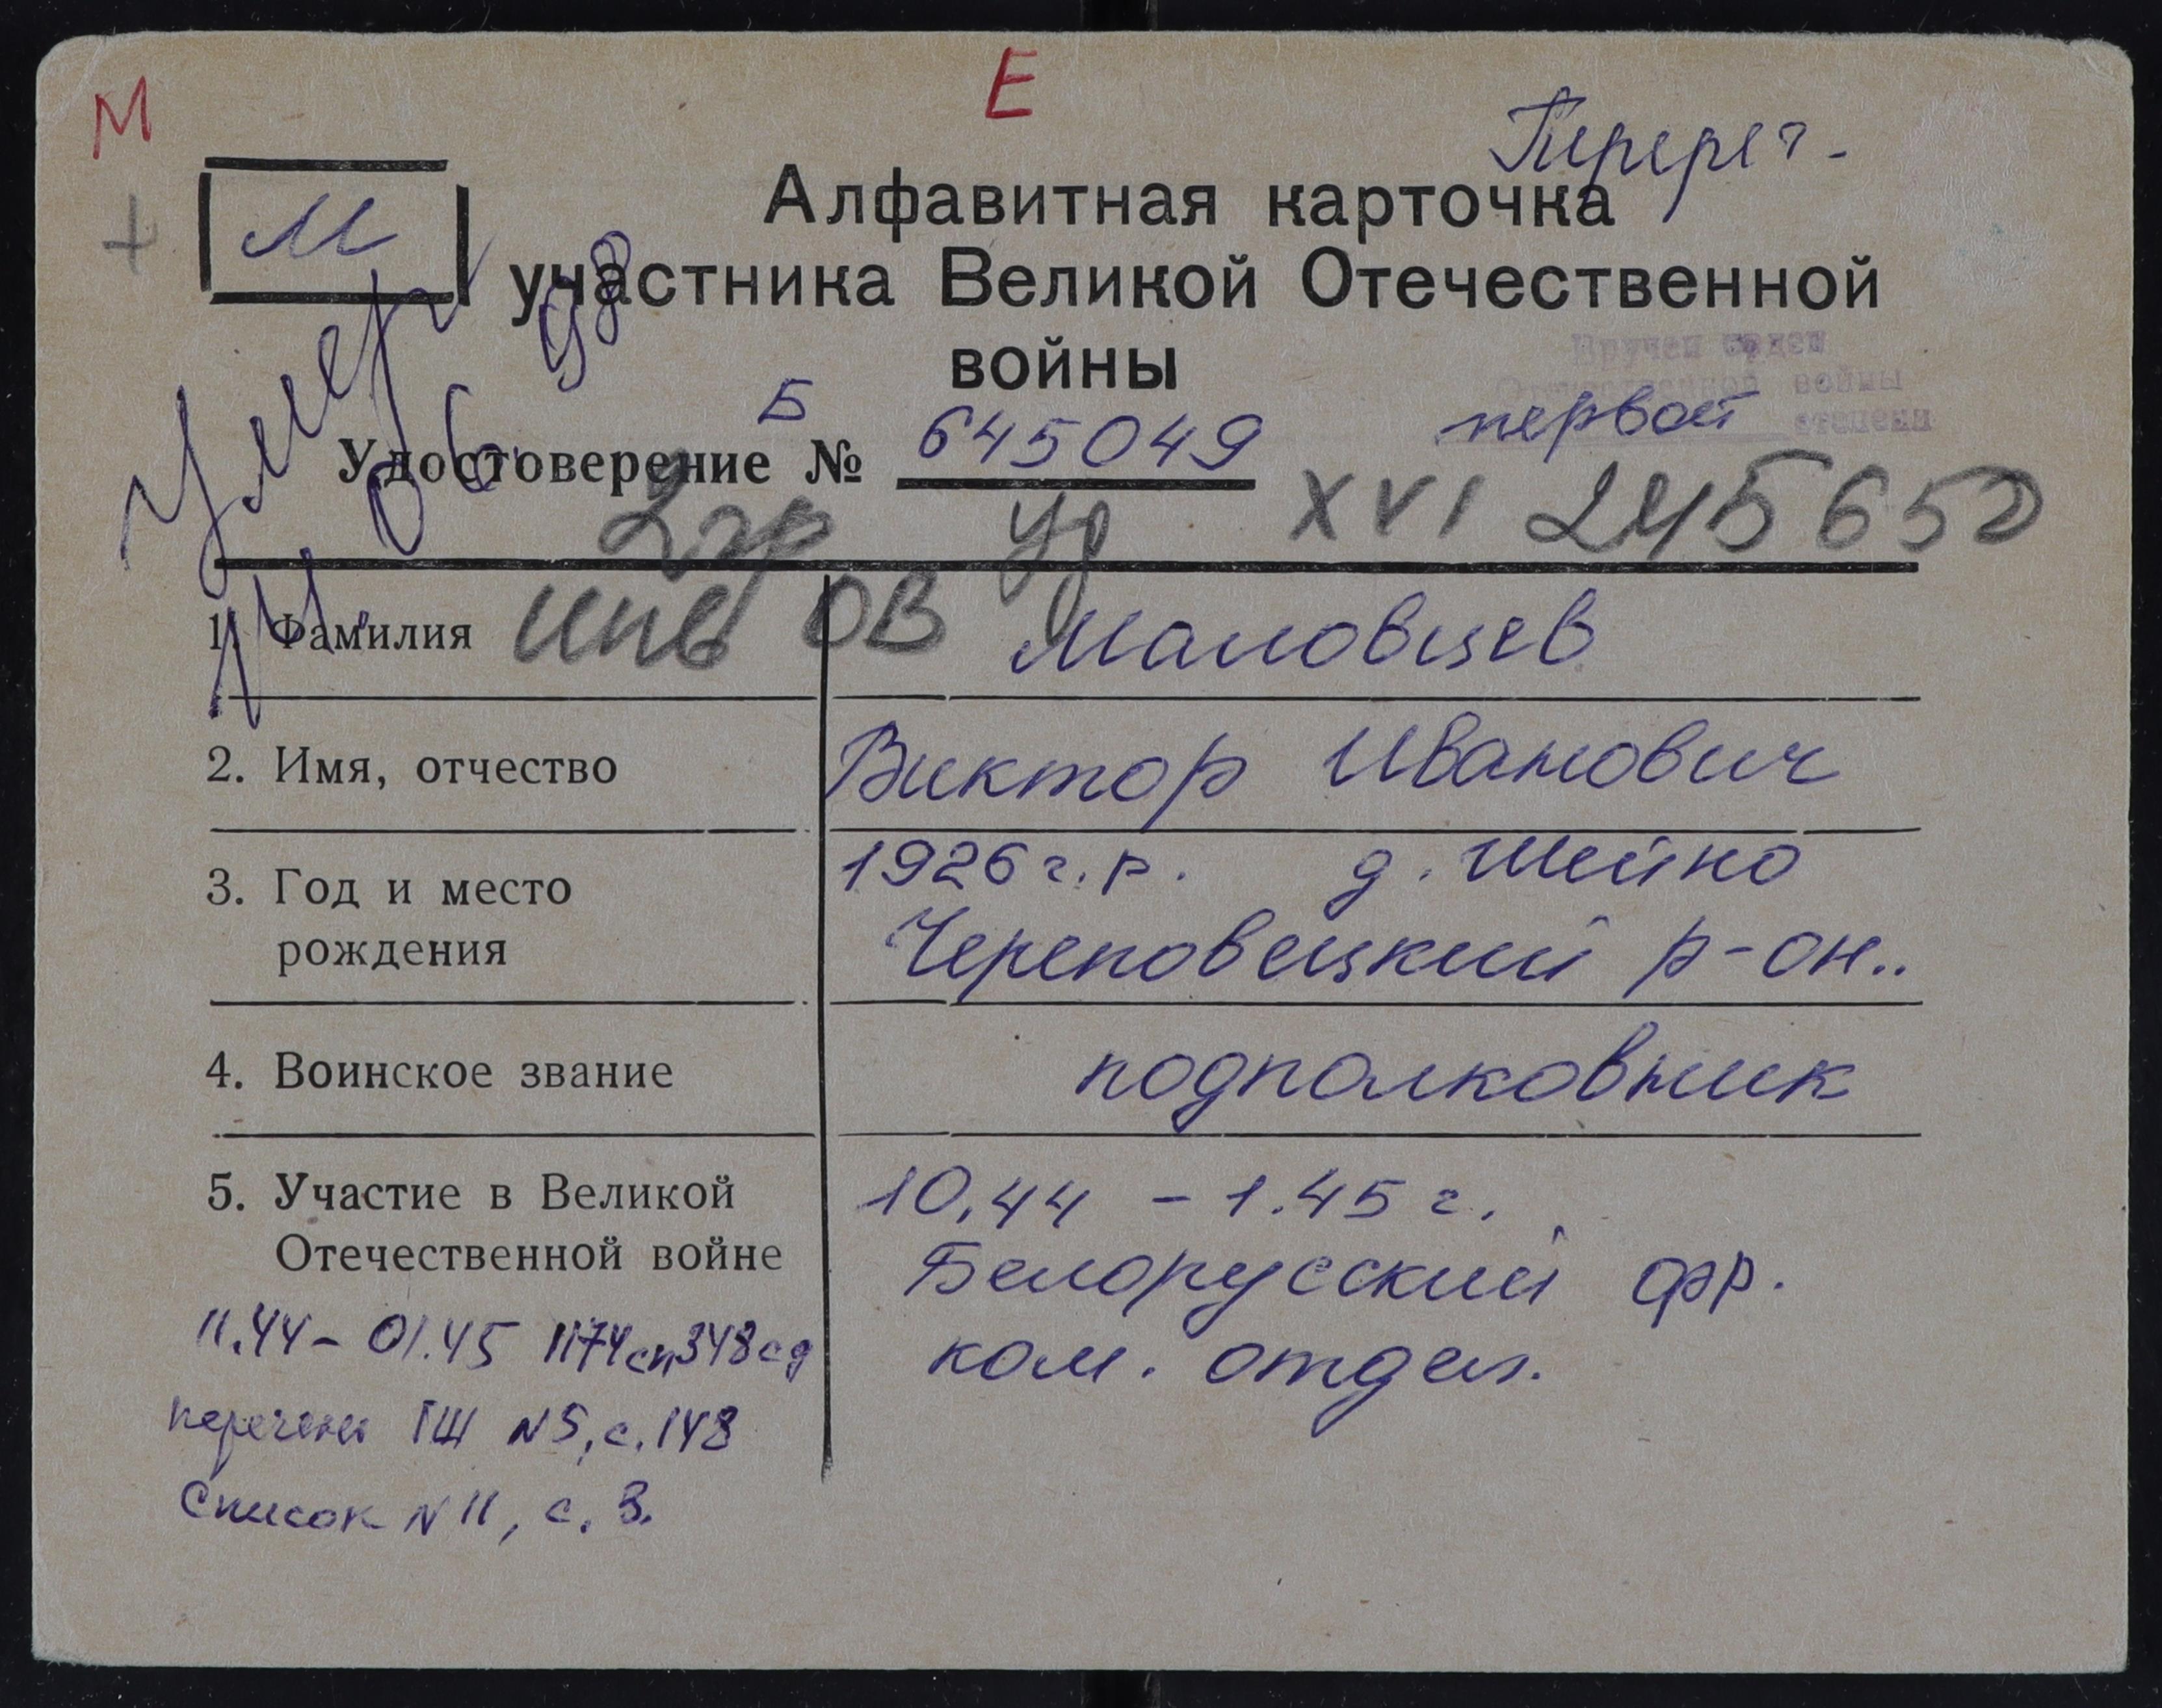 М
Е
Перерег-
+
М
Алфавитная карточка
участника Великой Отечественной
войны
Вручен орден
Отечественной войны
первой степени
Умер
11.06.98
Б
Удостоверение № 645049
2 гр Уд XVI 245650
инв ОВ
1. Фамилия
Маловцев
2. Имя, отчество
Виктор Иванович
3. Год и место
рождения
1926 г.р. д. Шейно
Череповецкий р-он..
4. Воинское звание
подполковник
5. Участие в Великой
Отечественной войне
10.44 - 1.45 г.
Белорусский фр.
ком. отдел.
11.44 - 01.45 1174 сп 348 сд
перечень ГШ N5, с. 148
Список N 11, с. 3.